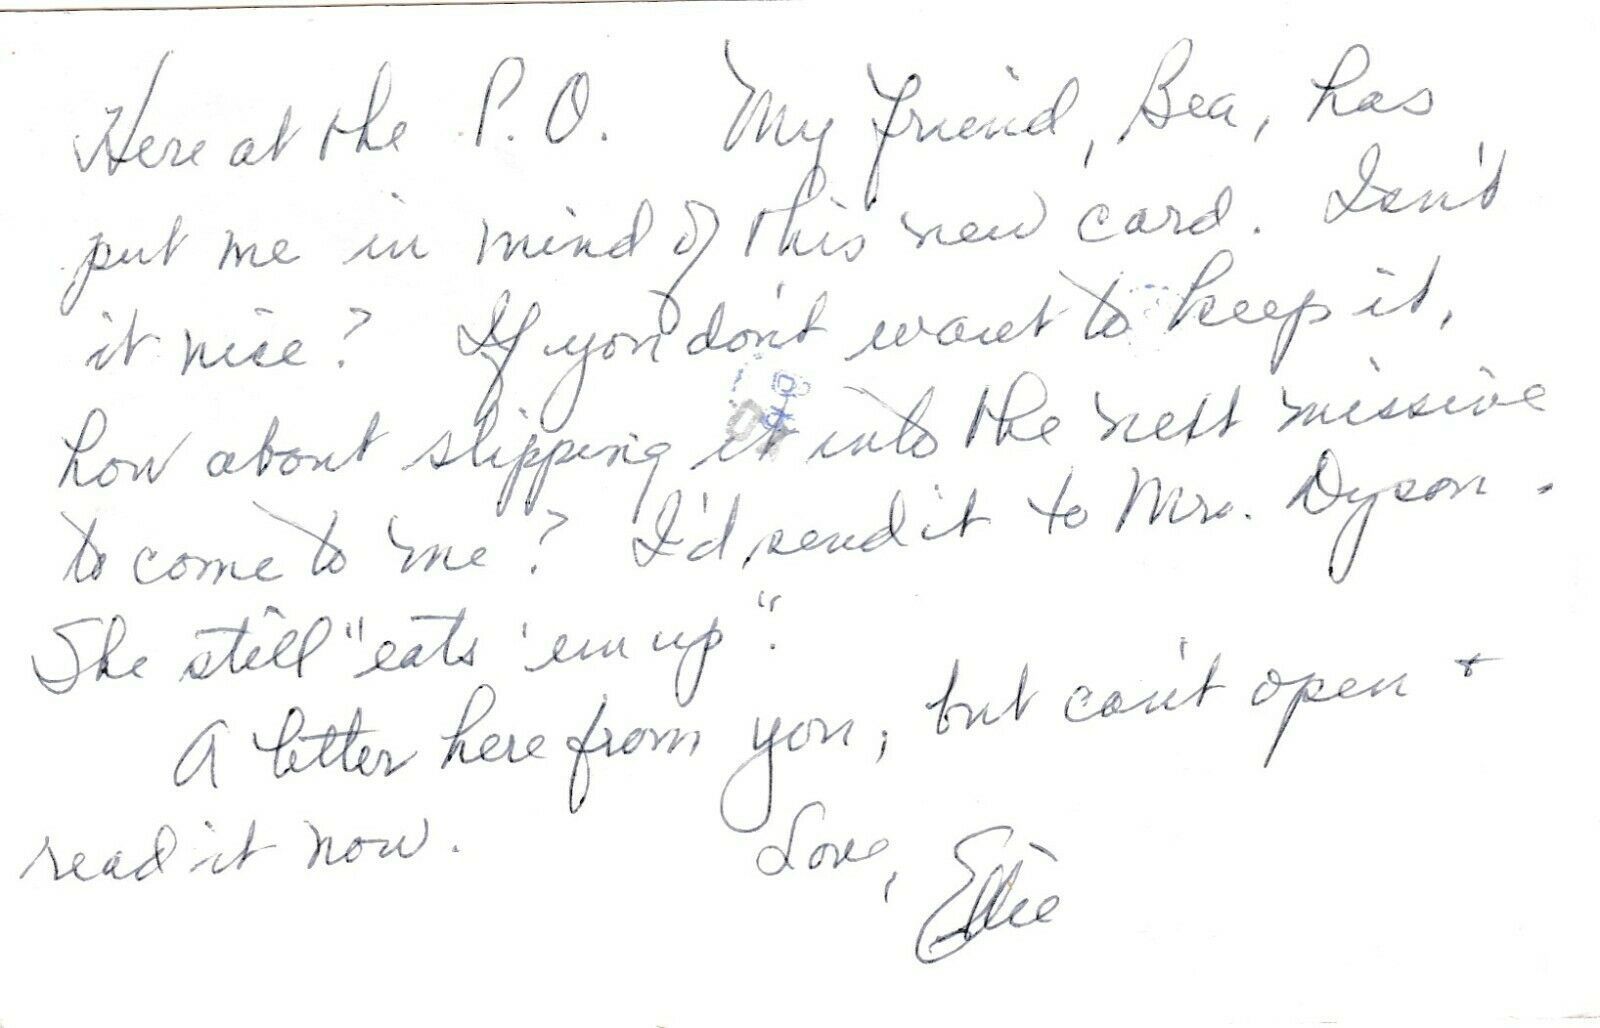 Here at the P.O. My friend, Bea, has
put me in mind of this new card. Isn't
it nice? If you don't want to keep it,
how about slipping it into the next missive
to come to me? I'd send it to Mrs. Dyson.
She still "eats 'em up".
A letter here from you, but can't open +
read it now. Love, Ellie